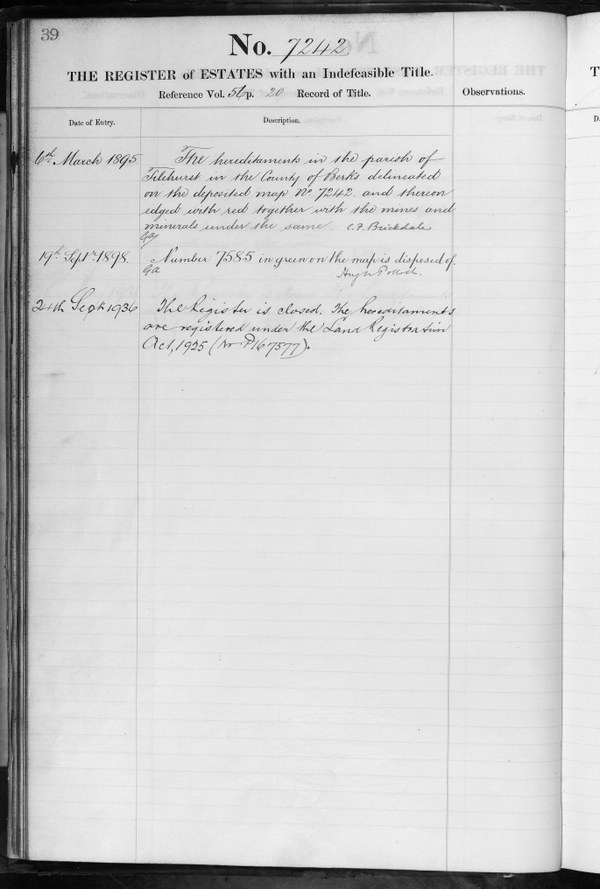 39
No. 7242.
THE REGISTER of ESTATES with an Indefeasible Title.
Reference Vol. 56 p. 20 Record of Title.
Observations.
Date of Entry.
Description.
6th March 1895
The hereditaments in the parish of
Tilehurst in the County of Berks delineated
on the deposited map No 7242 and thereon
edged with red together with the mines and
minerals under the same. C. F. Brickdale
19th Sept 1898.
Number 7585 in green on the map is disposed of.
Hugh Pollock.
24th Sept 1936
The Register is closed. The hereditaments
are registered under the Land Registration
Act, 1925 (No P167577).